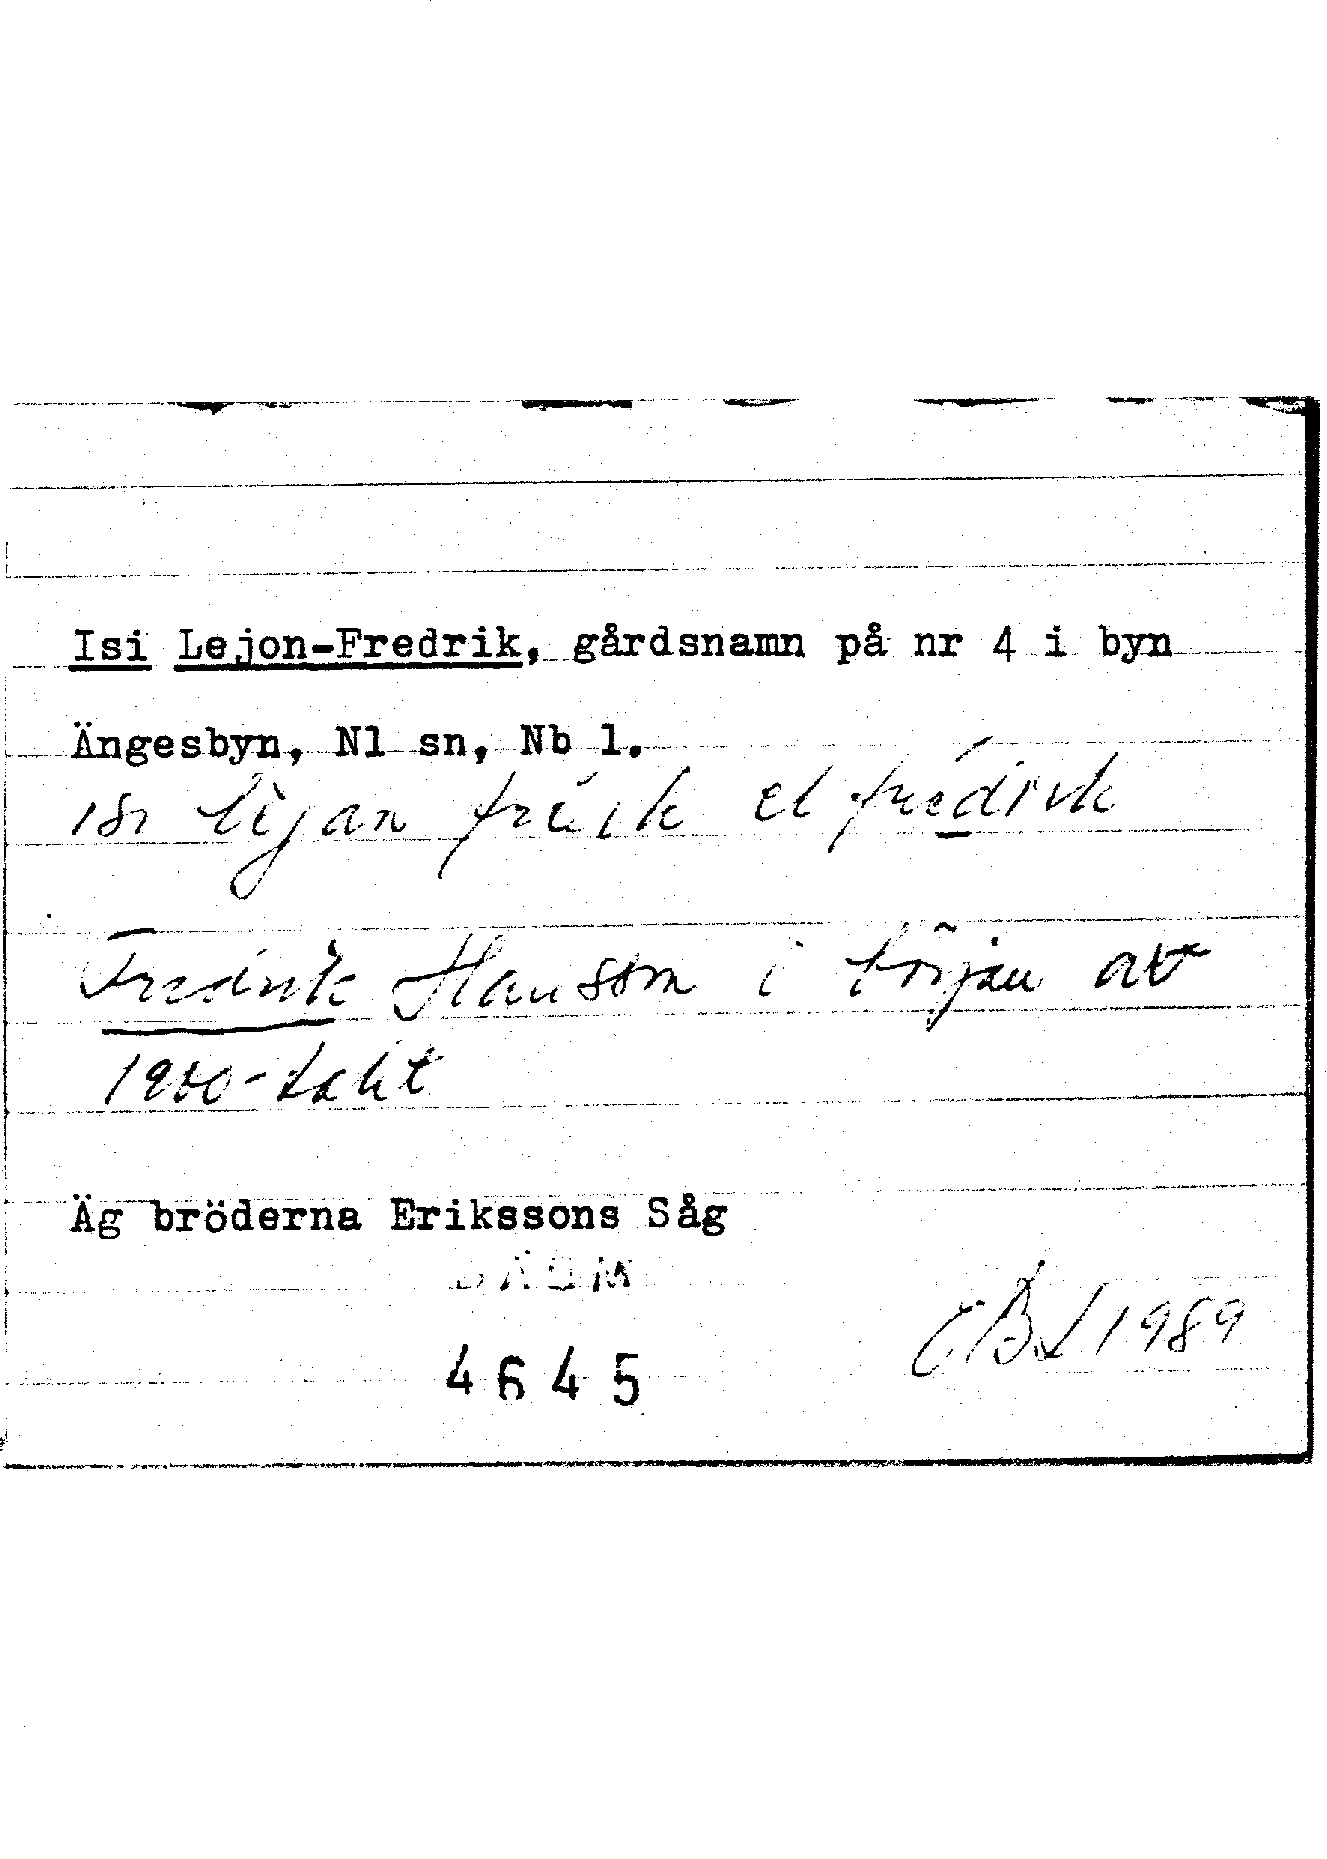 Isi Lejon-Fredrik, gårdsnamn på nr 4 i byn
Ängesbyn, Nl sn, Nb l.
isi frik el fredrik
Fredrik Hansson i början av
1900-talet
Äg bröderna Erikssons Såg
DAUM
4645
EBL 1989